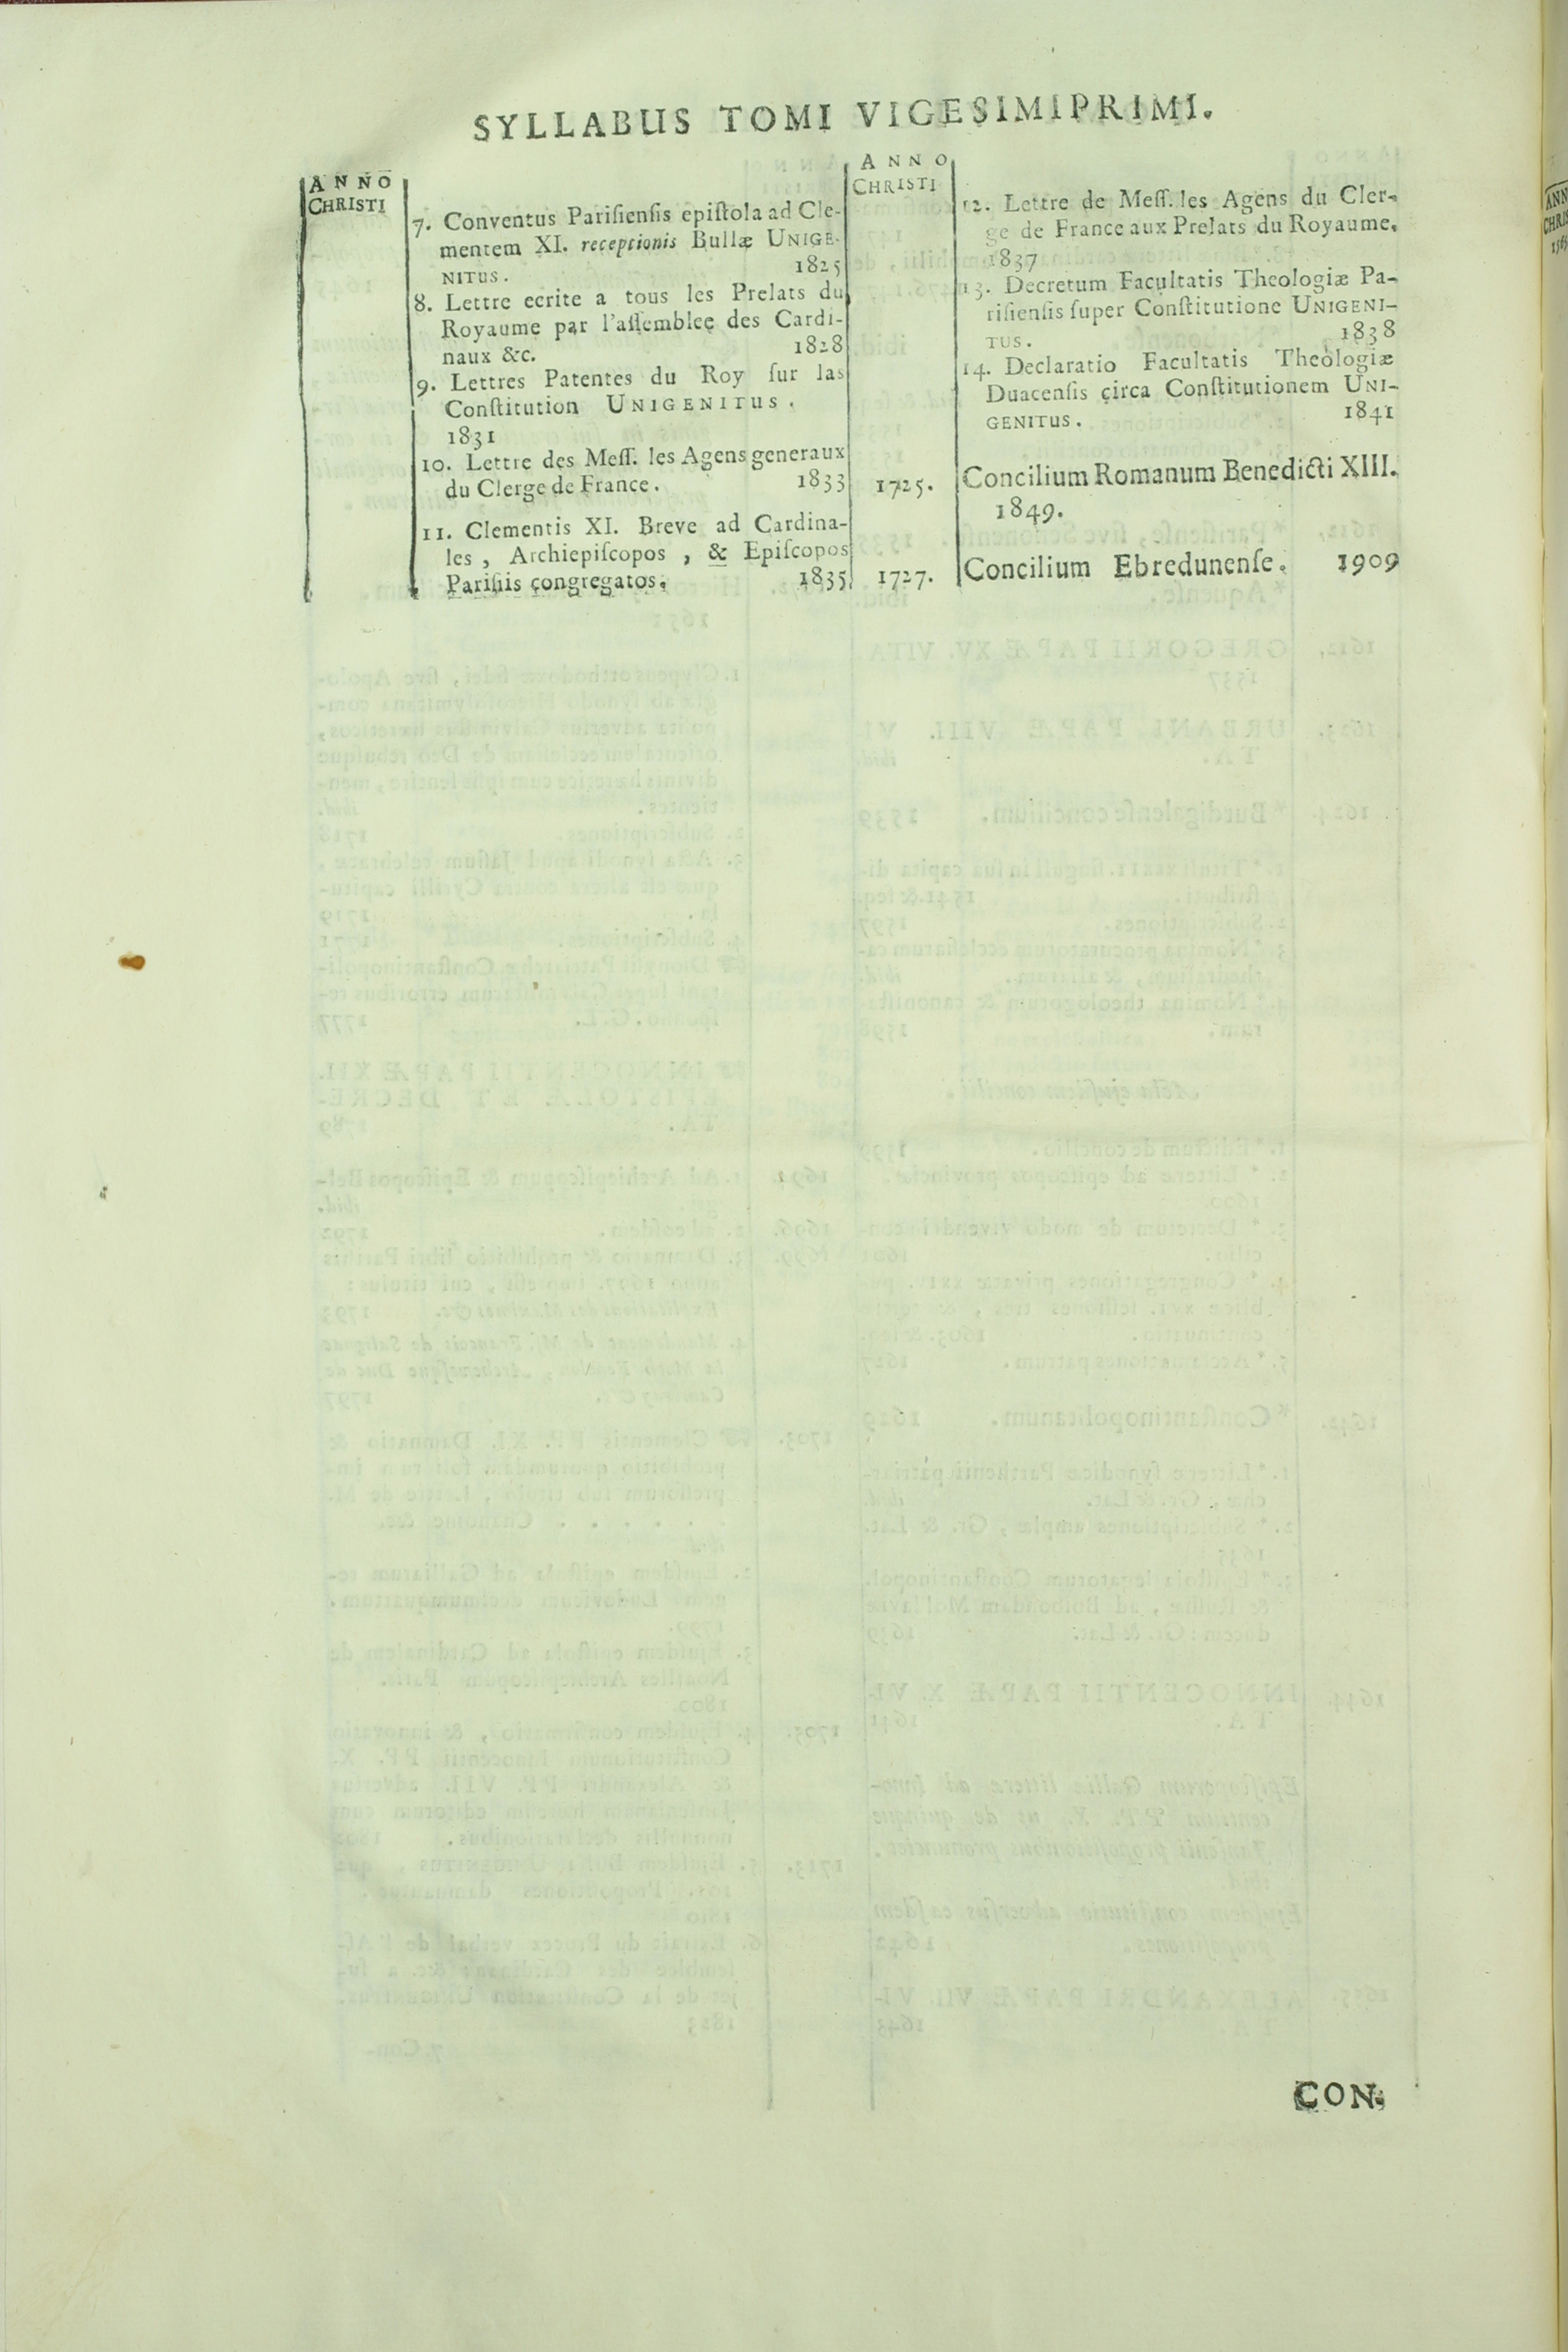 SYLLABUS TOMI VIGESIMIPRIMI.
ANNO
CHRISTI
7. Conventus Pariſienſis epiſtola ad Cle-
mentem XI. receptionis Bullæ UNIGE-
NITUS. 1825
8. Lettre ecrite a tous les Prelats du
Royaume par l'aſſemblee des Cardi-
naux &c. 1828
9. Lettres Patentes du Roy ſur las
Conſtitution UNIGENITUS.
1831
10. Lettre des Meſſ. les Agens generaux
du Clerge de France. 1833
11. Clementis XI. Breve ad Cardina-
les, Archiepiſcopos, & Epiſcopos
Pariſiis congregatos. 1835
ANNO
CHRISTI
12. Lettre de Meſſ. les Agens du Cler-
ge de France aux Prelats du Royaume.
1837
13. Decretum Facultatis Theologiæ Pa-
riſienſis ſuper Conſtitutione UNIGENI-
TUS. 1838
14. Declaratio Facultatis Theologiæ
Duacenſis circa Conſtitutionem UNI-
GENITUS. 1841
1725. Concilium Romanum Benedicti XIII.
1849.
1727. Concilium Ebredunenſe. 1909
CON-